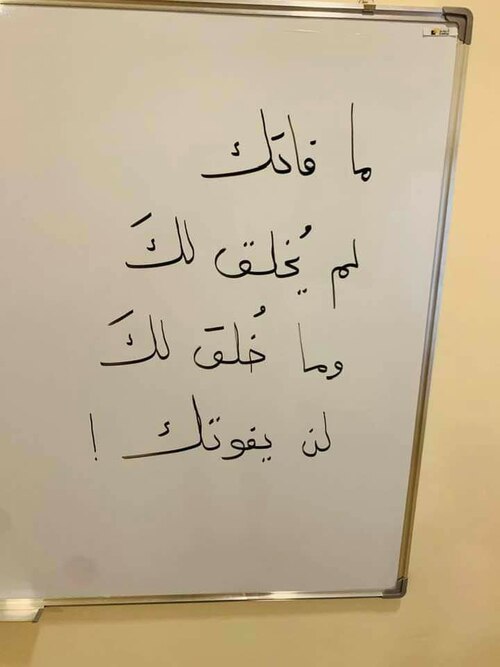 ما فاتك
لم يُخلق لكَ
وما خُلقَ لكَ
لن يفوتك !